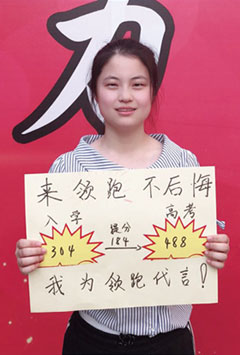 力
来领跑 不后悔
入学 提分 高考
304 184 488
我为领跑代言！